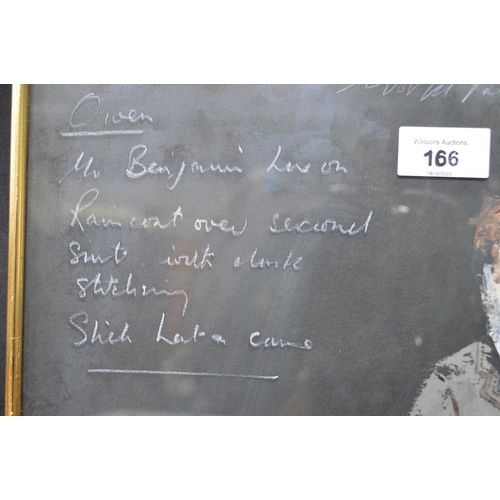 Owen
Mr Benjamin
Raincoat over second
Suit with white
Stitching
Stick hat + cane
Watsons Auctions
166